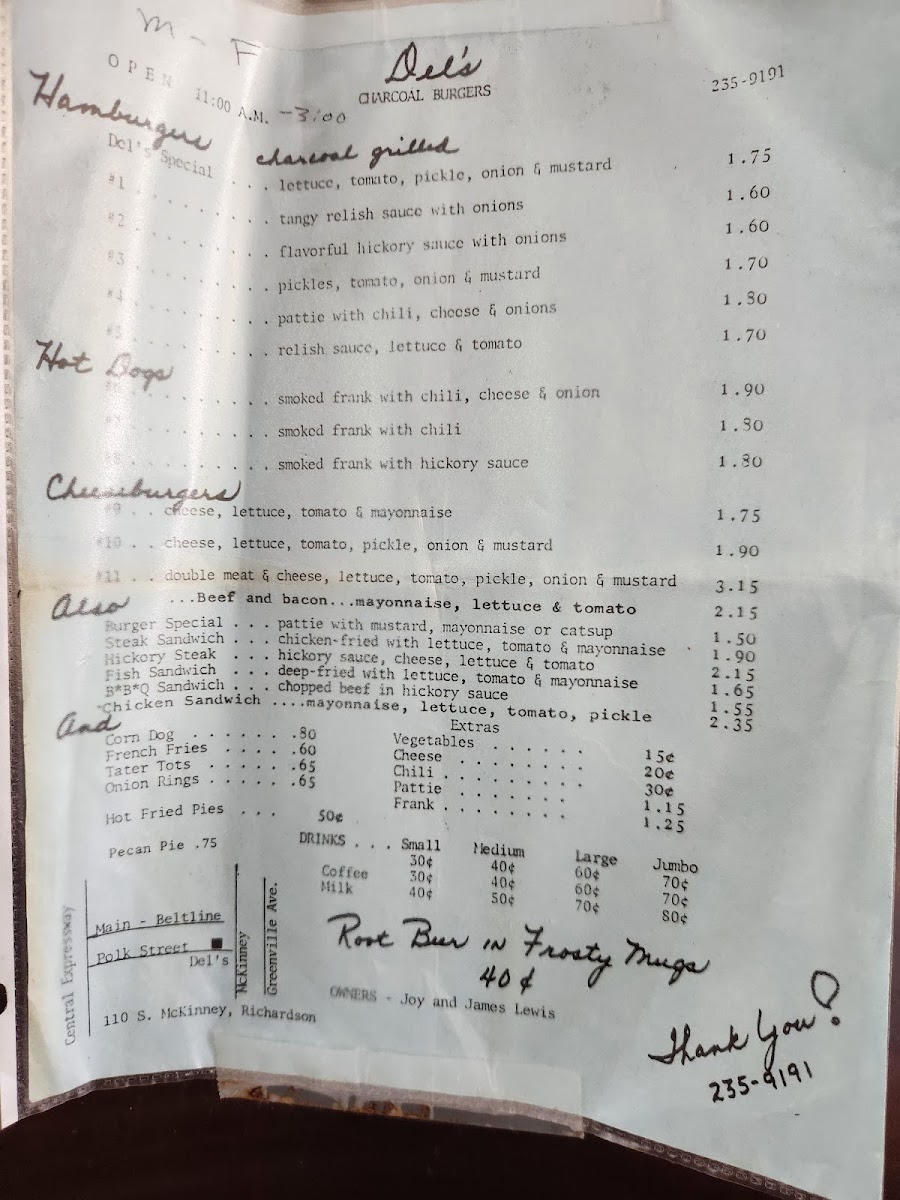 M - F
Del's
OPEN 11:00 A.M. - 3:00
CHARCOAL BURGERS
235-9191
Hamburgers charcoal grilled
Del's Special . . . lettuce, tomato, pickle, onion & mustard 1.75
#1 . . . . . . . . . tangy relish sauce with onions 1.60
#2 . . . . . . . . . flavorful hickory sauce with onions 1.60
#3 . . . . . . . . . pickles, tomato, onion & mustard 1.70
#4 . . . . . . . . . pattie with chili, cheese & onions 1.80
#5 . . . . . . . . . relish sauce, lettuce & tomato 1.70
Hot Dogs
. . . . . . . . . smoked frank with chili, cheese & onion 1.90
. . . . . . . . . smoked frank with chili 1.80
. . . . . . . . . smoked frank with hickory sauce 1.80
Cheeseburgers
#9 . . cheese, lettuce, tomato & mayonnaise 1.75
#10 . . cheese, lettuce, tomato, pickle, onion & mustard 1.90
#11 . . double meat & cheese, lettuce, tomato, pickle, onion & mustard 3.15
Also ...Beef and bacon...mayonnaise, lettuce & tomato 2.15
Burger Special . . . pattie with mustard, mayonnaise or catsup 1.50
Steak Sandwich . . . chicken-fried with lettuce, tomato & mayonnaise 1.90
Hickory Steak . . . hickory sauce, cheese, lettuce & tomato 2.15
Fish Sandwich . . . deep-fried with lettuce, tomato & mayonnaise 1.65
B*B*Q Sandwich . . . chopped beef in hickory sauce 1.55
Chicken Sandwich ....mayonnaise, lettuce, tomato, pickle 2.35
And
Corn Dog . . . . . . . .80
French Fries . . . . . .60
Tater Tots . . . . . . .65
Onion Rings . . . . . .65
Hot Fried Pies . . . 50¢
Pecan Pie .75
Extras
Vegetables . . . . . . 15¢
Cheese . . . . . . . . 20¢
Chili . . . . . . . . . 30¢
Pattie . . . . . . . . 1.15
Frank . . . . . . . . 1.25
DRINKS . . . Small Medium Large Jumbo
30¢ 40¢ 60¢ 70¢
Coffee 30¢ 40¢ 60¢ 70¢
Milk 40¢ 50¢ 70¢ 80¢
Central Expressway
Main - Beltline
Polk Street
Del's
McKinney
Greenville Ave.
110 S. McKinney, Richardson
Root Beer in Frosty Mugs
40¢
OWNERS - Joy and James Lewis
Thank You!
235-9191